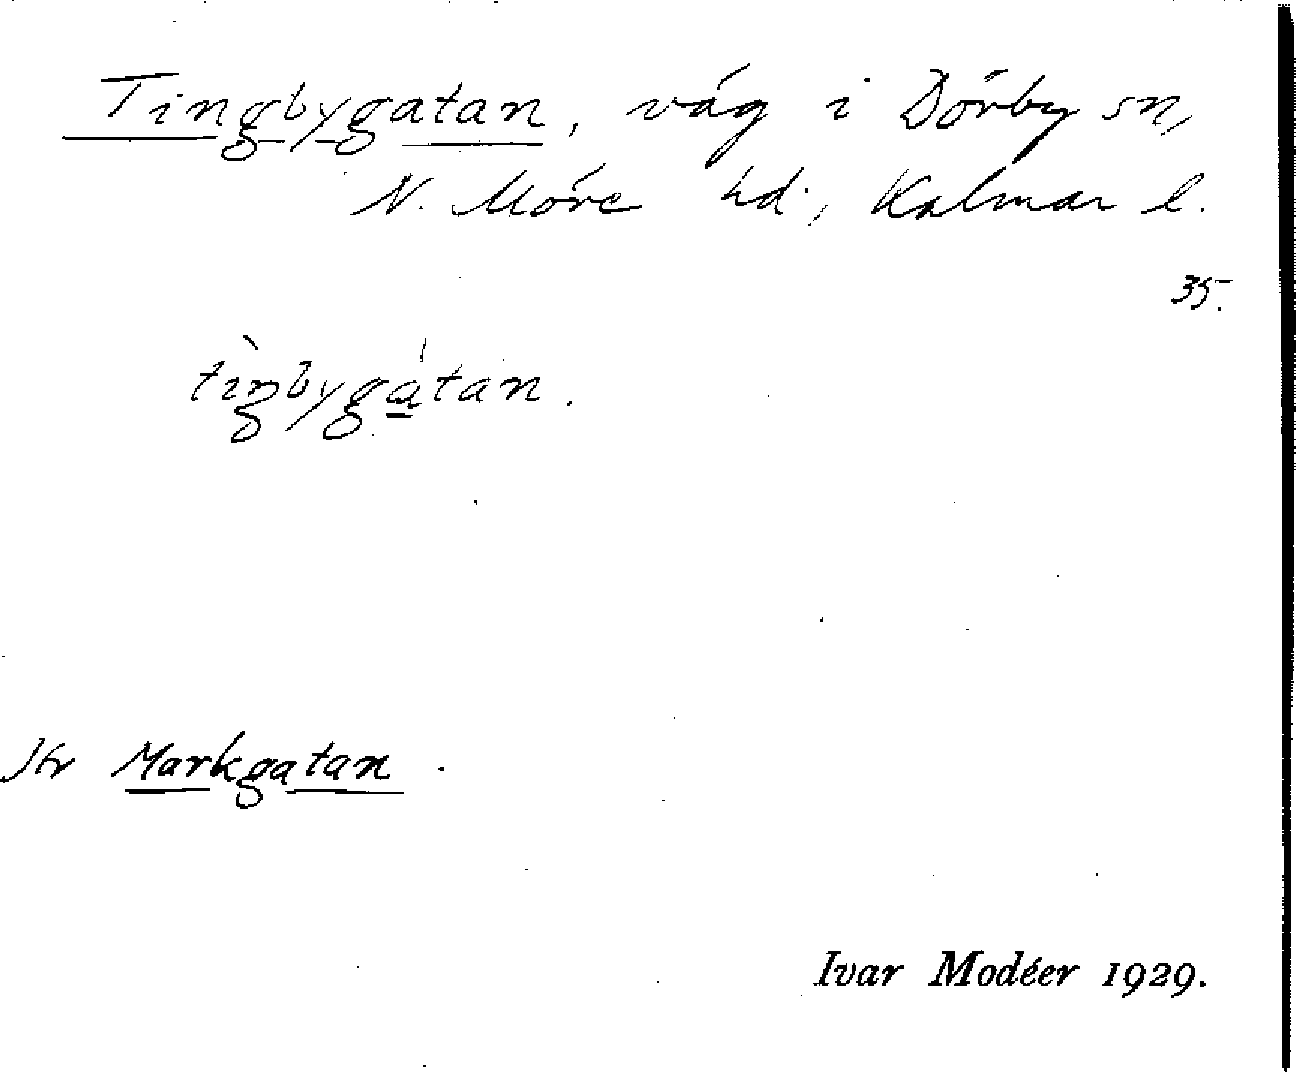 Tingbygatan, väg i Dörby sn,
N. Möre hd., Kalmar l.
35.
tìngbygátan.
Jfr Markgatan.
Ivar Modéer 1929.